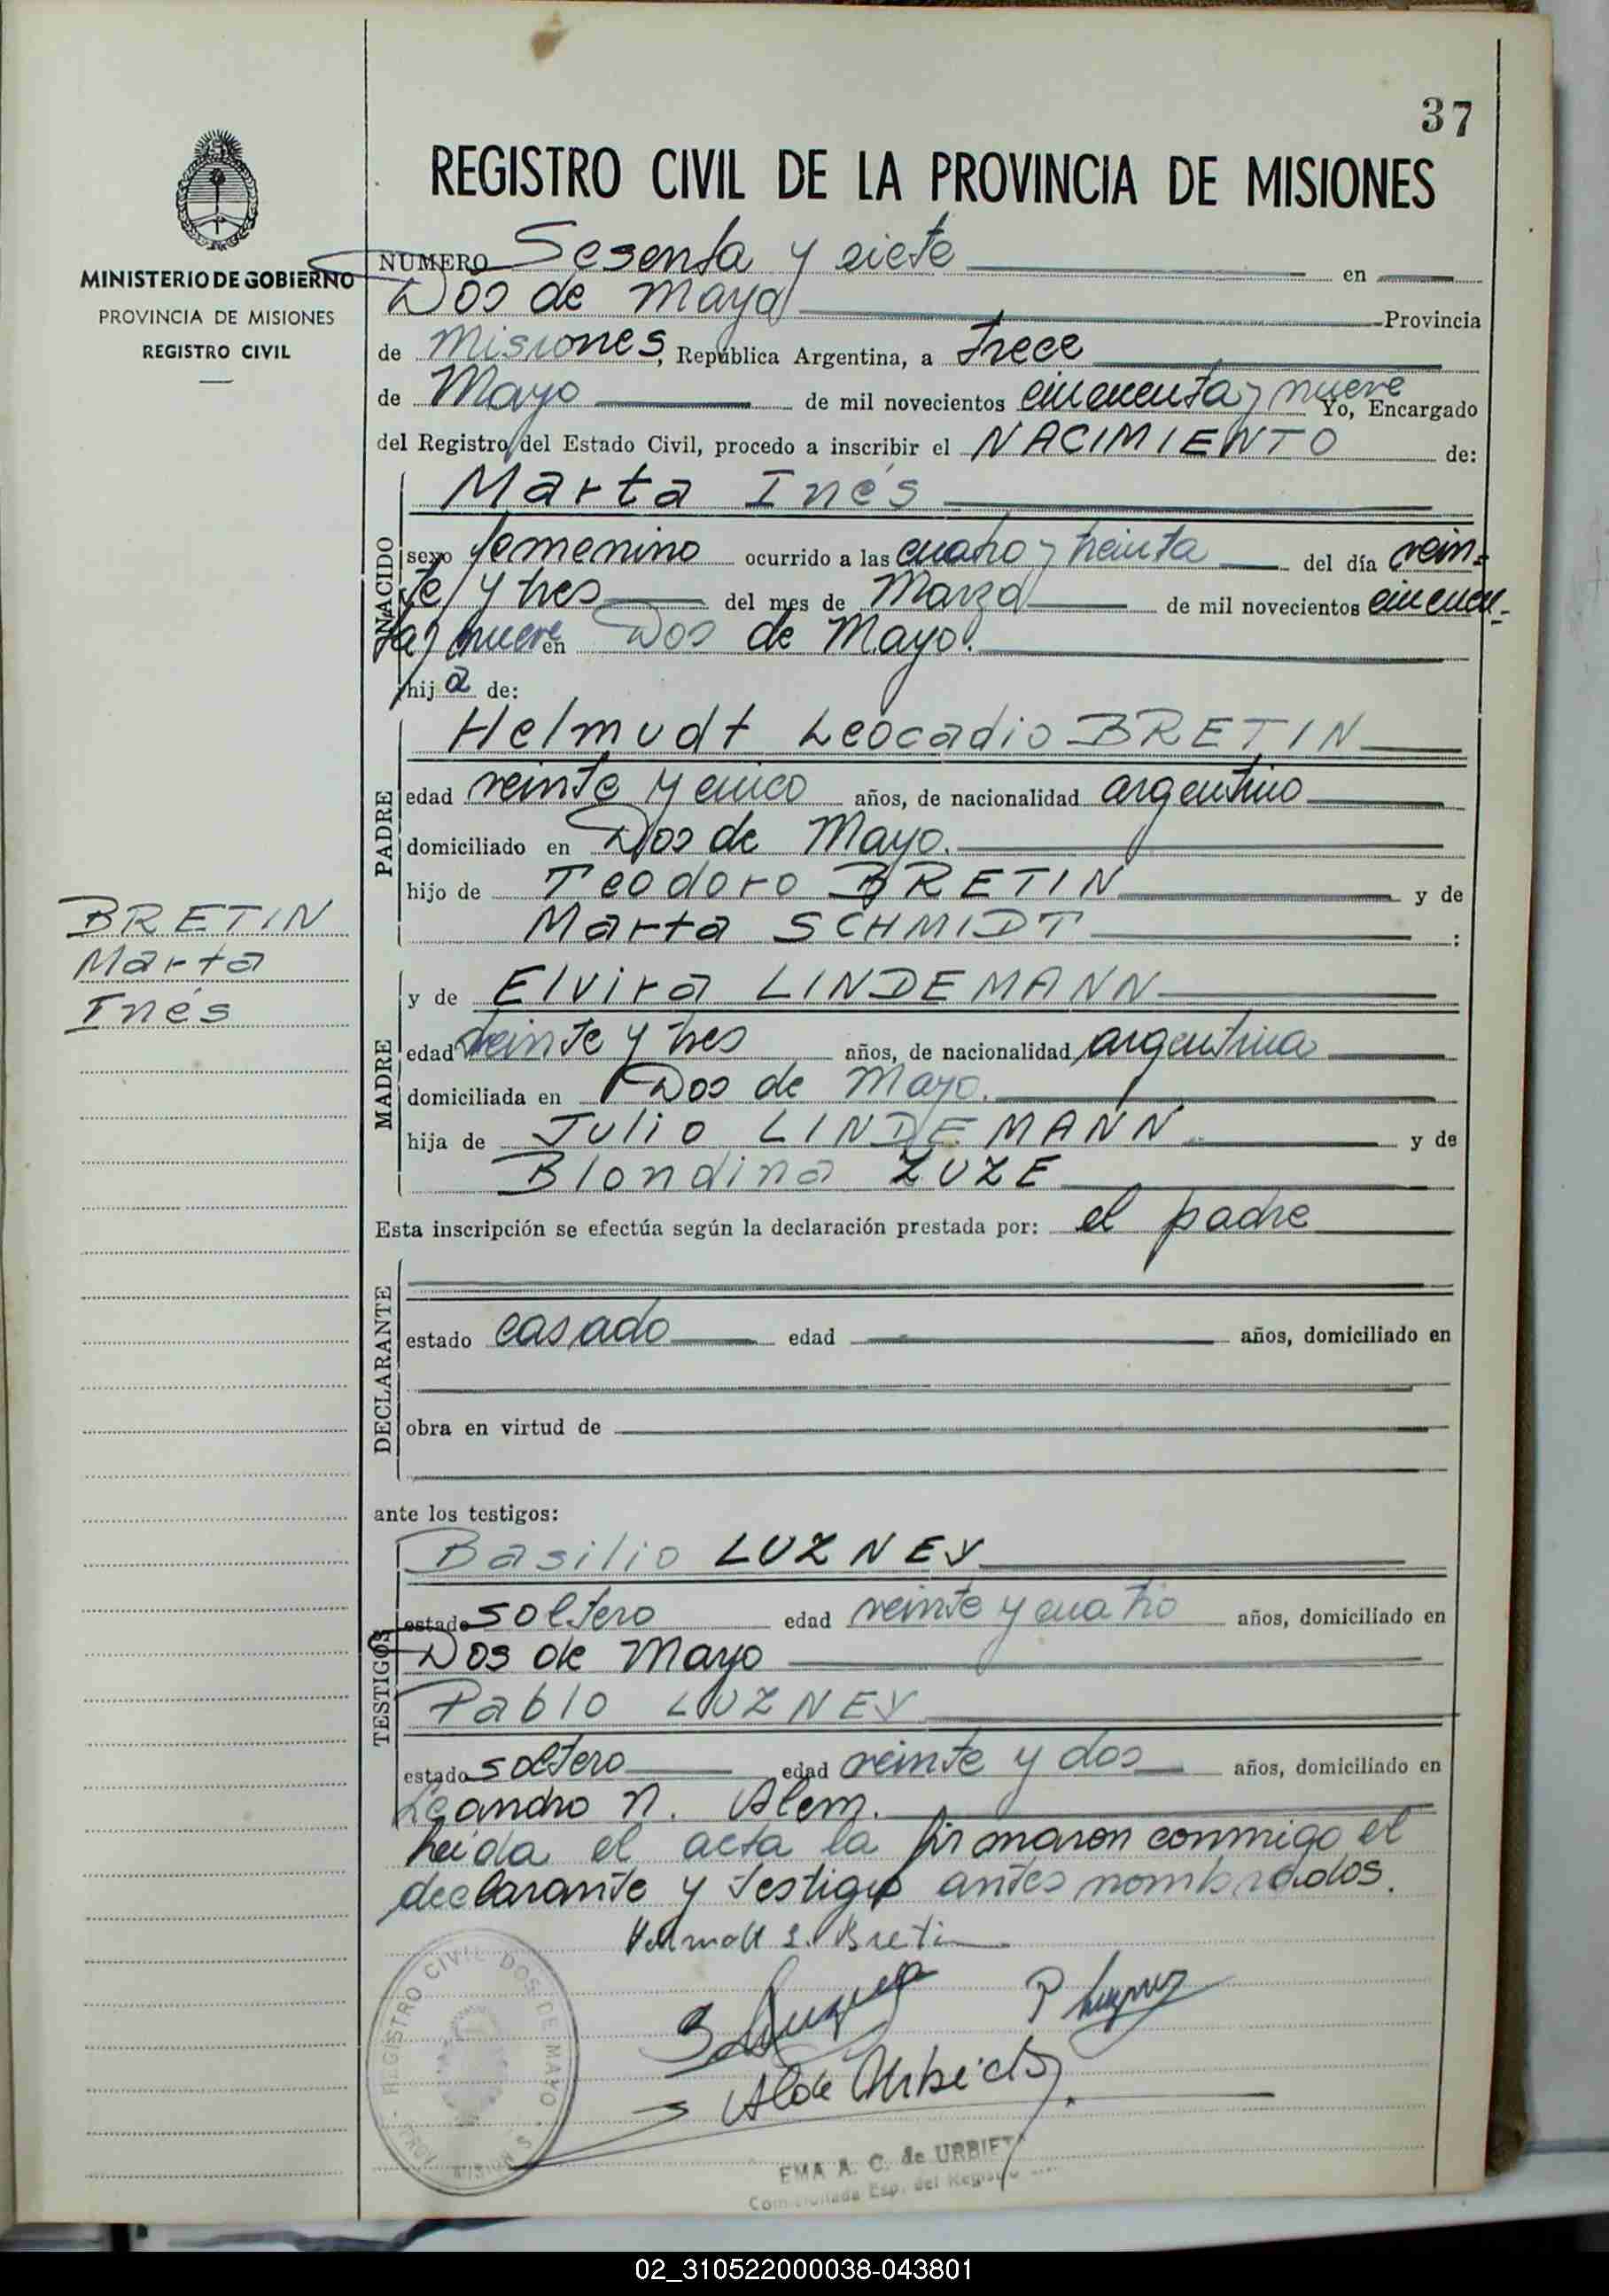 37
REGISTRO CIVIL DE LA PROVINCIA DE MISIONES
MINISTERIO DE GOBIERNO
PROVINCIA DE MISIONES
REGISTRO CIVIL
NUMERO Sesenta y siete en
Dos de Mayo Provincia
de Misiones, República Argentina, a trece
de Mayo de mil novecientos cincuenta y nueve Yo, Encargado
del Registro del Estado Civil, procedo a inscribir el NACIMIENTO de:
NACIDO
Marta Inés
sexo femenino ocurrido a las cuatro y treinta del día vein-
te y tres del mes de Marzo de mil novecientos cincuen-
ta y nueve en Dos de Mayo.
hija de:
PADRE
Helmudt Leocadio BRETIN
edad veinte y cinco años, de nacionalidad argentino
domiciliado en Dos de Mayo.
hijo de Teodoro BRETIN y de
Marta SCHMIDT :
BRETIN
Marta
Inés
MADRE
y de Elvira LINDEMANN
edad veinte y tres años, de nacionalidad argentina
domiciliada en Dos de Mayo.
hija de Julio LINDEMANN y de
Blondina ZUZE
Esta inscripción se efectúa según la declaración prestada por: el padre
DECLARANTE
estado casado edad años, domiciliado en
obra en virtud de
ante los testigos:
TESTIGOS
Basilio LUZNEY
estado soltero edad veinte y cuatro años, domiciliado en
Dos de Mayo
Pablo LUZNEY
estado soltero edad veinte y dos años, domiciliado en
Leandro N. Alem.
Leída el acta la firmaron conmigo el
declarante y testigos antes nombrados.
REGISTRO CIVIL DOS DE MAYO
EMA A. C. de URBIETA
Comisionada Esp. del Registro
02_310522000038-043801